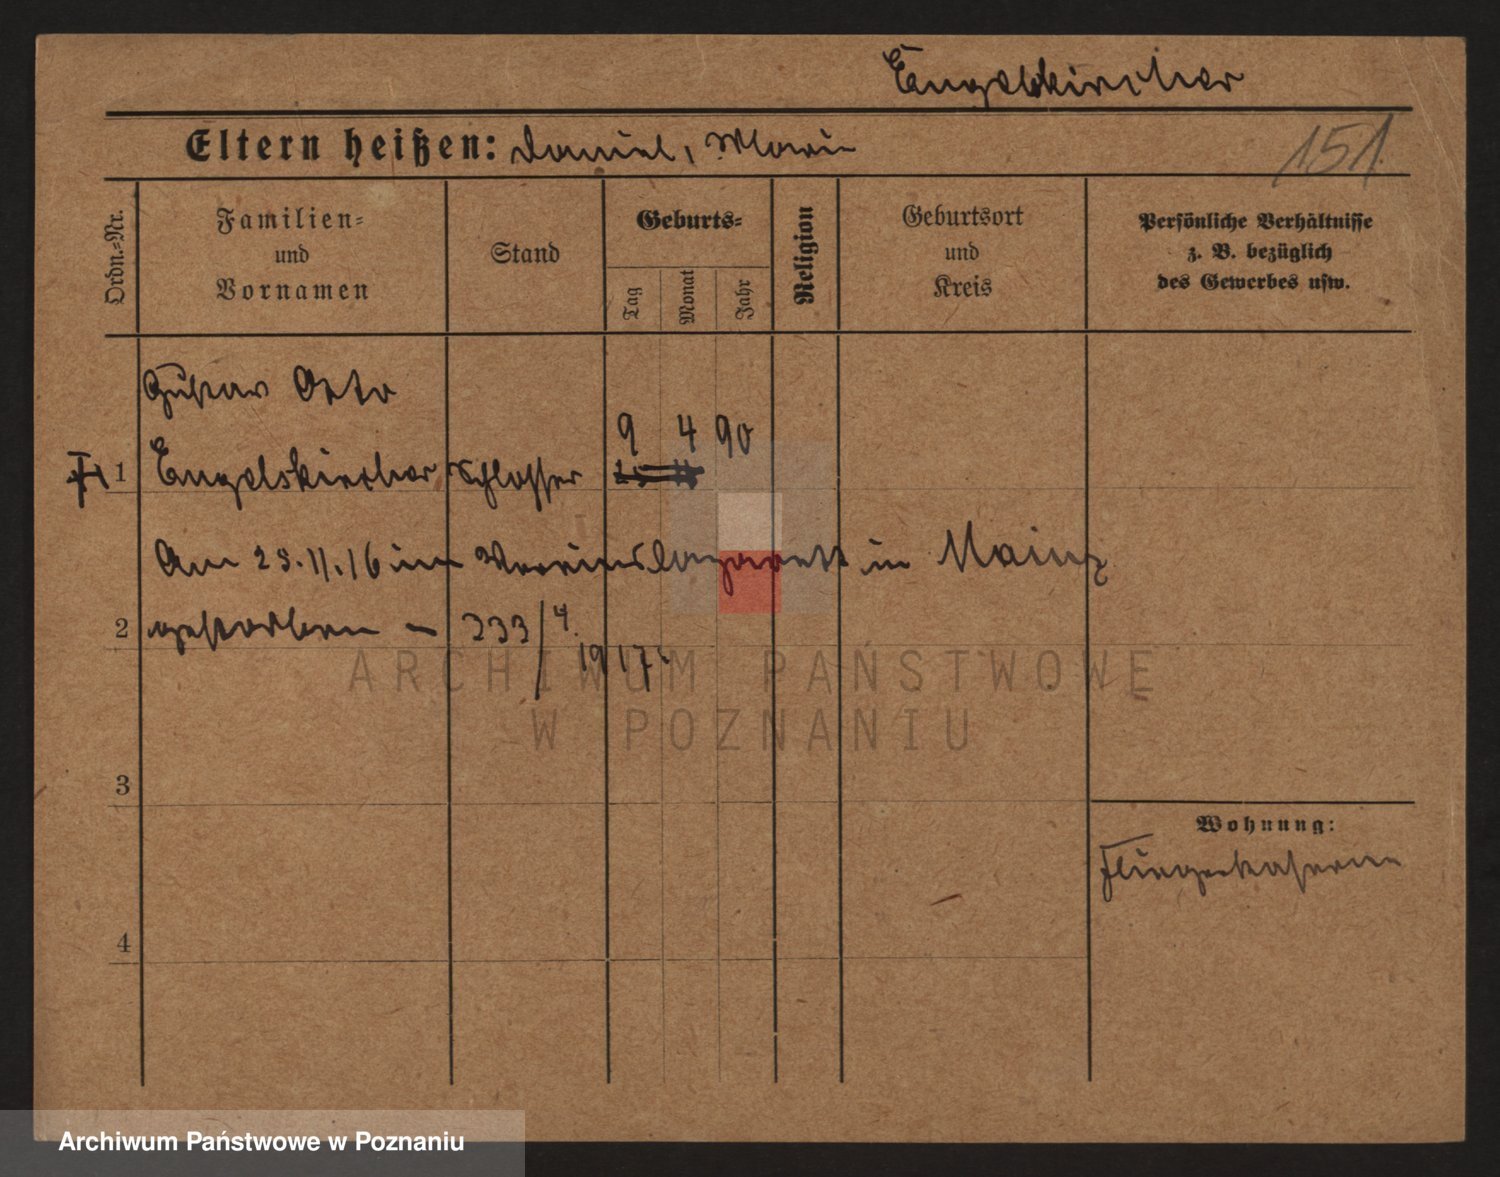 Engelskircher
Eltern heißen: Daniel, Marie
151
Ordn.-Nr.
Familien-
und
Vornamen
Stand
Geburts-
Tag
Monat
Jahr
Religion
Geburtsort
und
Kreis
Persönliche Verhältnisse
z. B. bezüglich
des Gewerbes usw.
Gustav Otto
9 4 90
1 Engelskircher Schlosser
Am 23.11.16 im Vereinslazarett in Mainz
2 gestorben – 333/4.
1917.
ARCHIWUM PAŃSTWOWE
W POZNANIU
3
Wohnung:
Fliegerkaserne
4
Archiwum Państwowe w Poznaniu